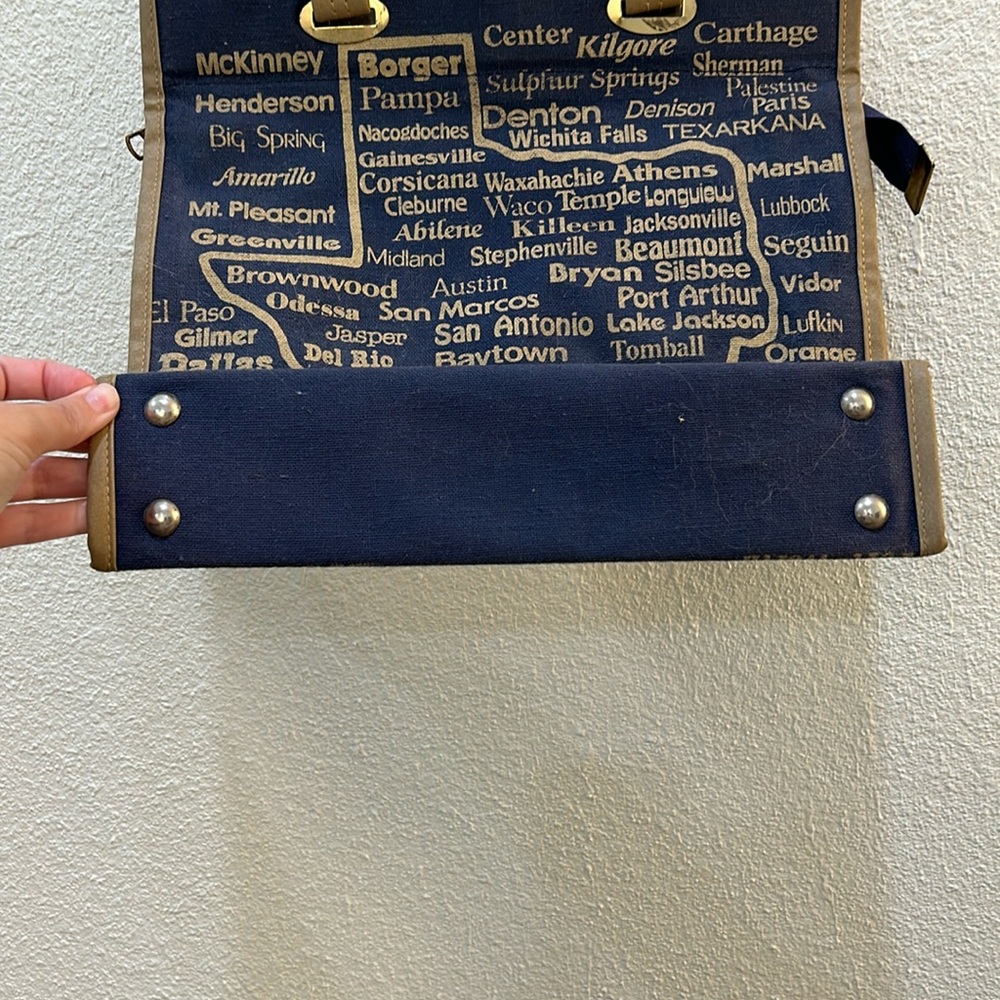 Center Kilgore Carthage
McKinney Borger Sulphur Springs Sherman
Henderson Pampa Denton Denison Palestine
Paris
Big Spring Nacogdoches Wichita Falls TEXARKANA
Gainesville
Amarillo Corsicana Waxahachie Athens Marshall
Mt. Pleasant Cleburne Waco Temple Longview Lubbock
Greenville Abilene Killeen Jacksonville
Midland Stephenville Beaumont Seguin
Brownwood Austin Bryan Silsbee Vidor
El Paso Odessa San Marcos Port Arthur
Gilmer Jasper San Antonio Lake Jackson Lufkin
Dallas Del Rio Baytown Tomball Orange